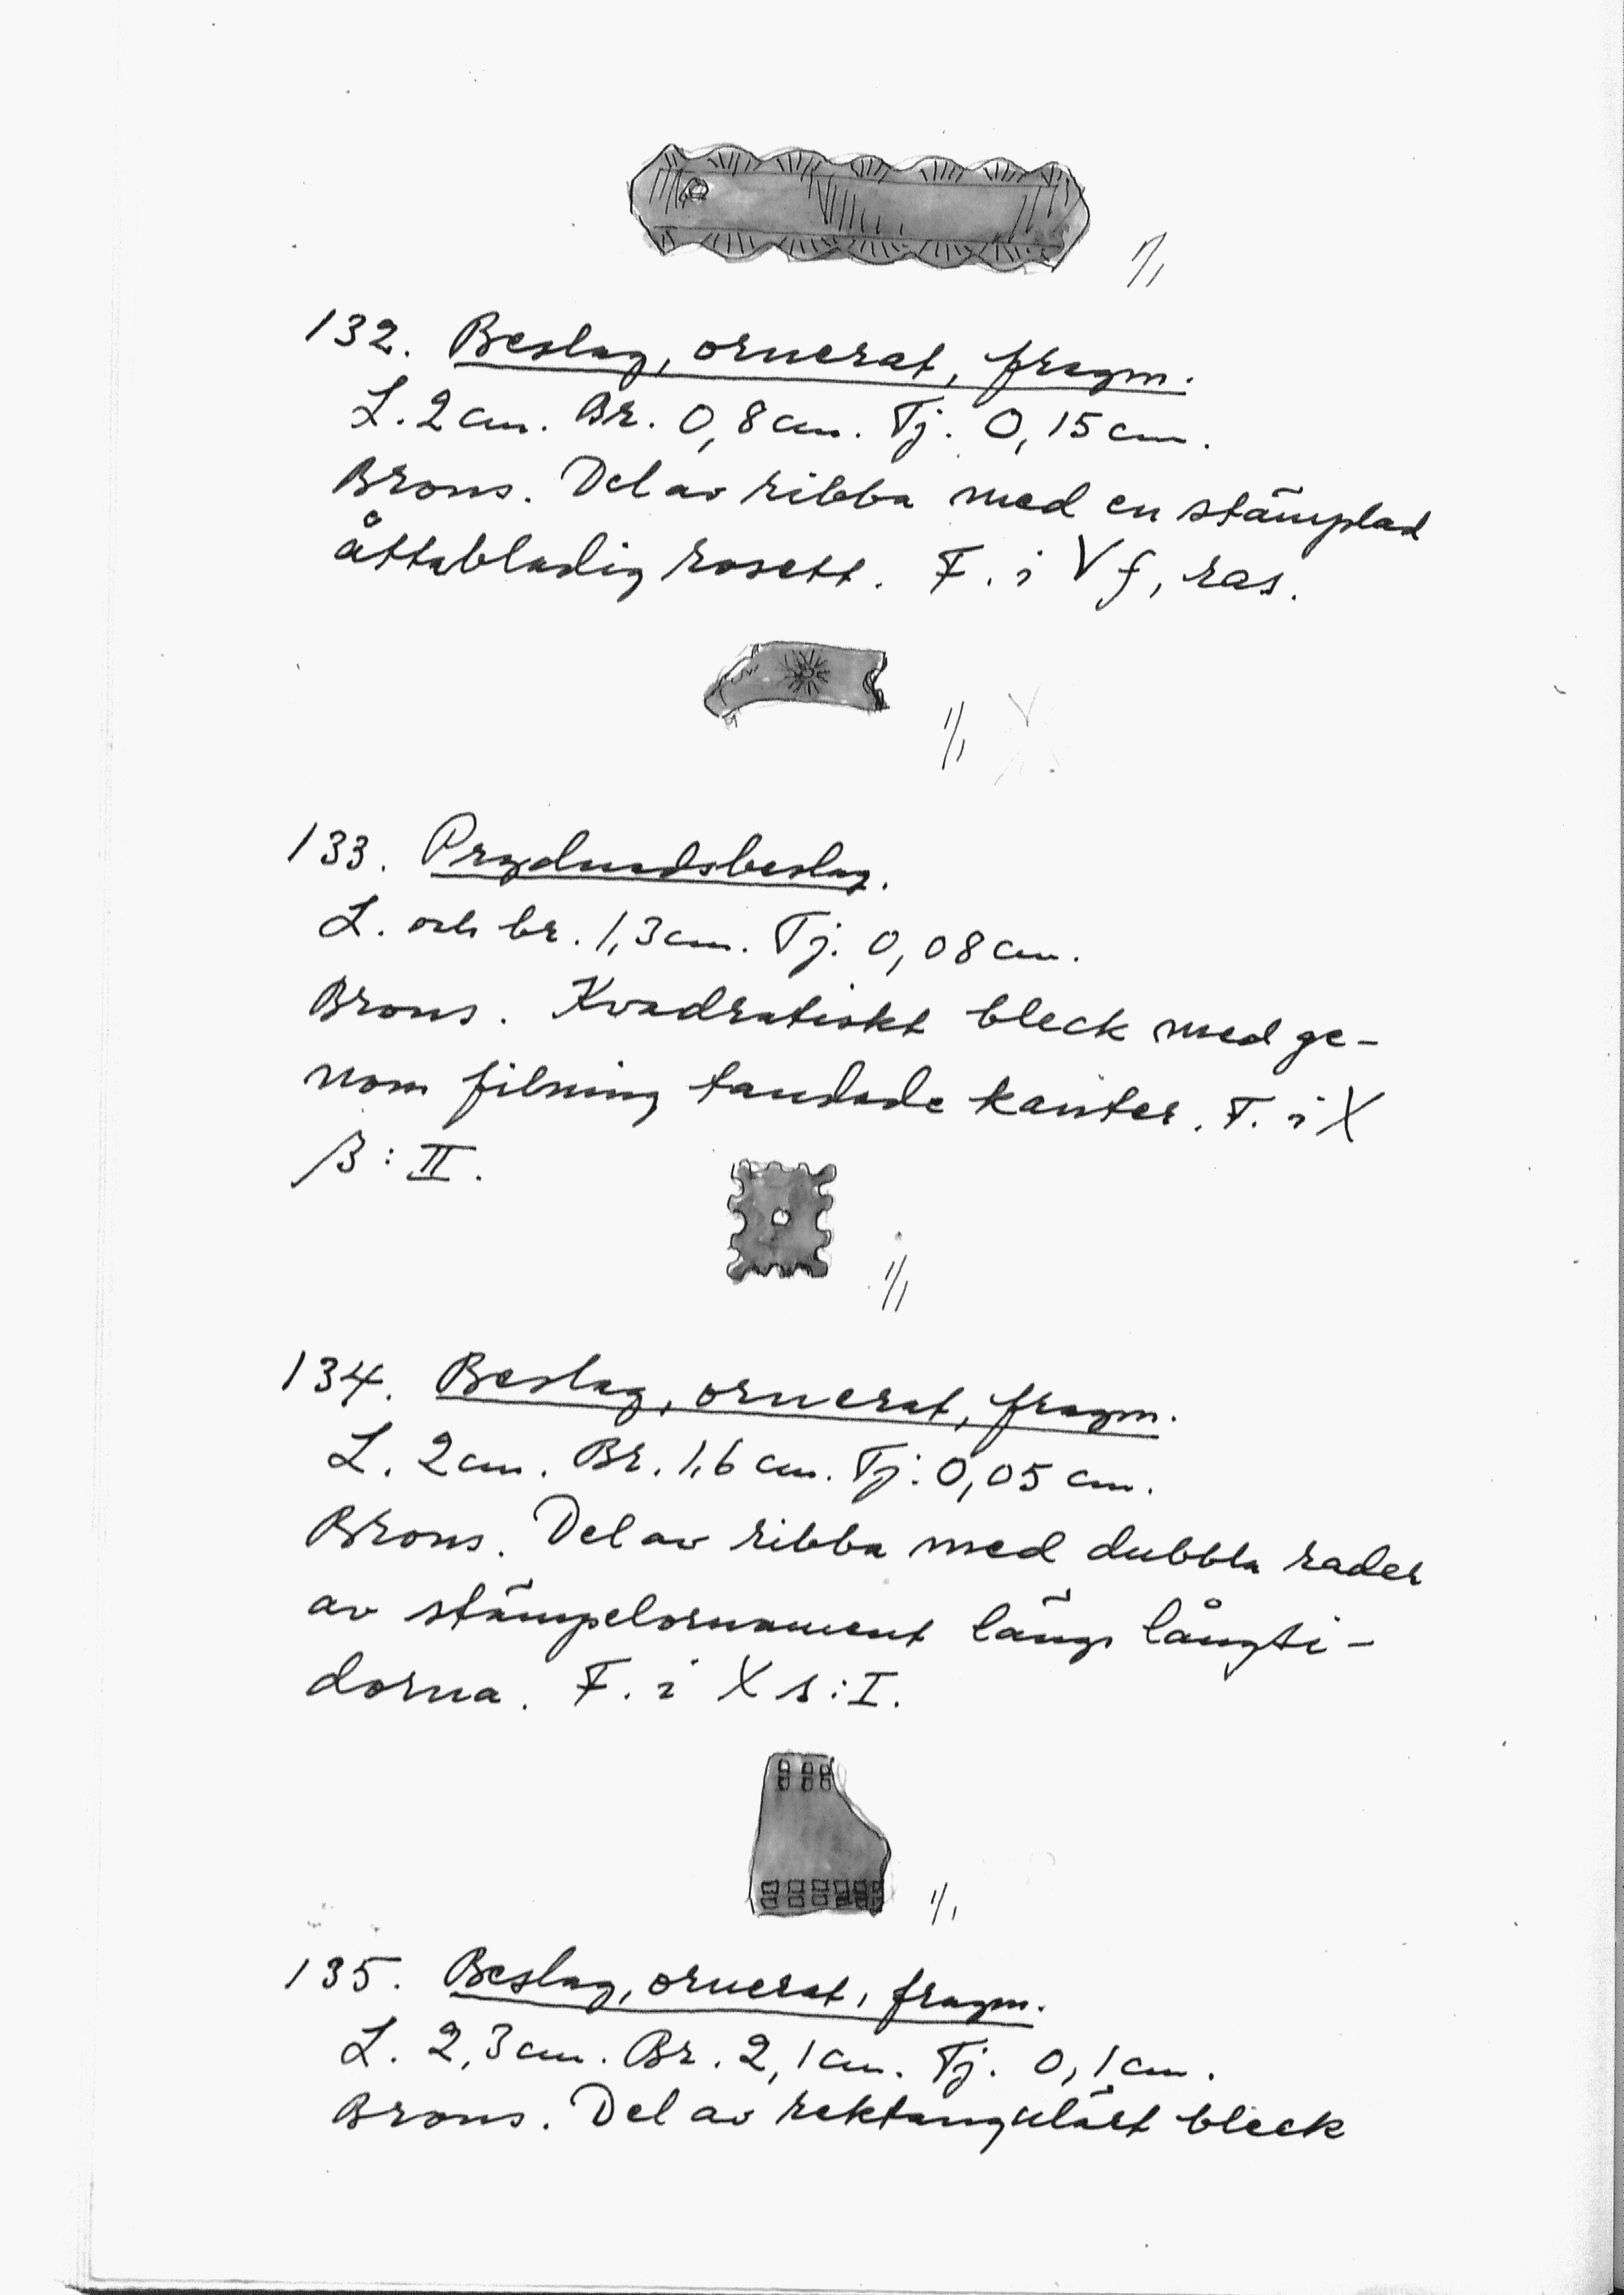 1/1
132. Beslag, ornerat, fragm.
L. 2 cm. Br. 0,8 cm. Tj. 0,15 cm.
Brons. Del av ribba med en stämplad
åttabladig rosett. F. i V f, ras.
1/1
133. Prydnadsbeslag.
L. och br. 1,3 cm. Tj. 0,08 cm.
Brons. Kvadratiskt bleck med ge-
nom filning tandade kanter. F. i X
β: II.
1/1
134. Beslag, ornerat, fragm.
L. 2 cm. Br. 1,6 cm. Tj. 0,05 cm.
Brons. Del av ribba med dubbla rader
av stämpelornament längs långsi-
dorna. F. i X s: I.
1/1
135. Beslag, ornerat, fragm.
L. 2,3 cm. Br. 2,1 cm. Tj. 0,1 cm.
Brons. Del av rektangulärt bleck